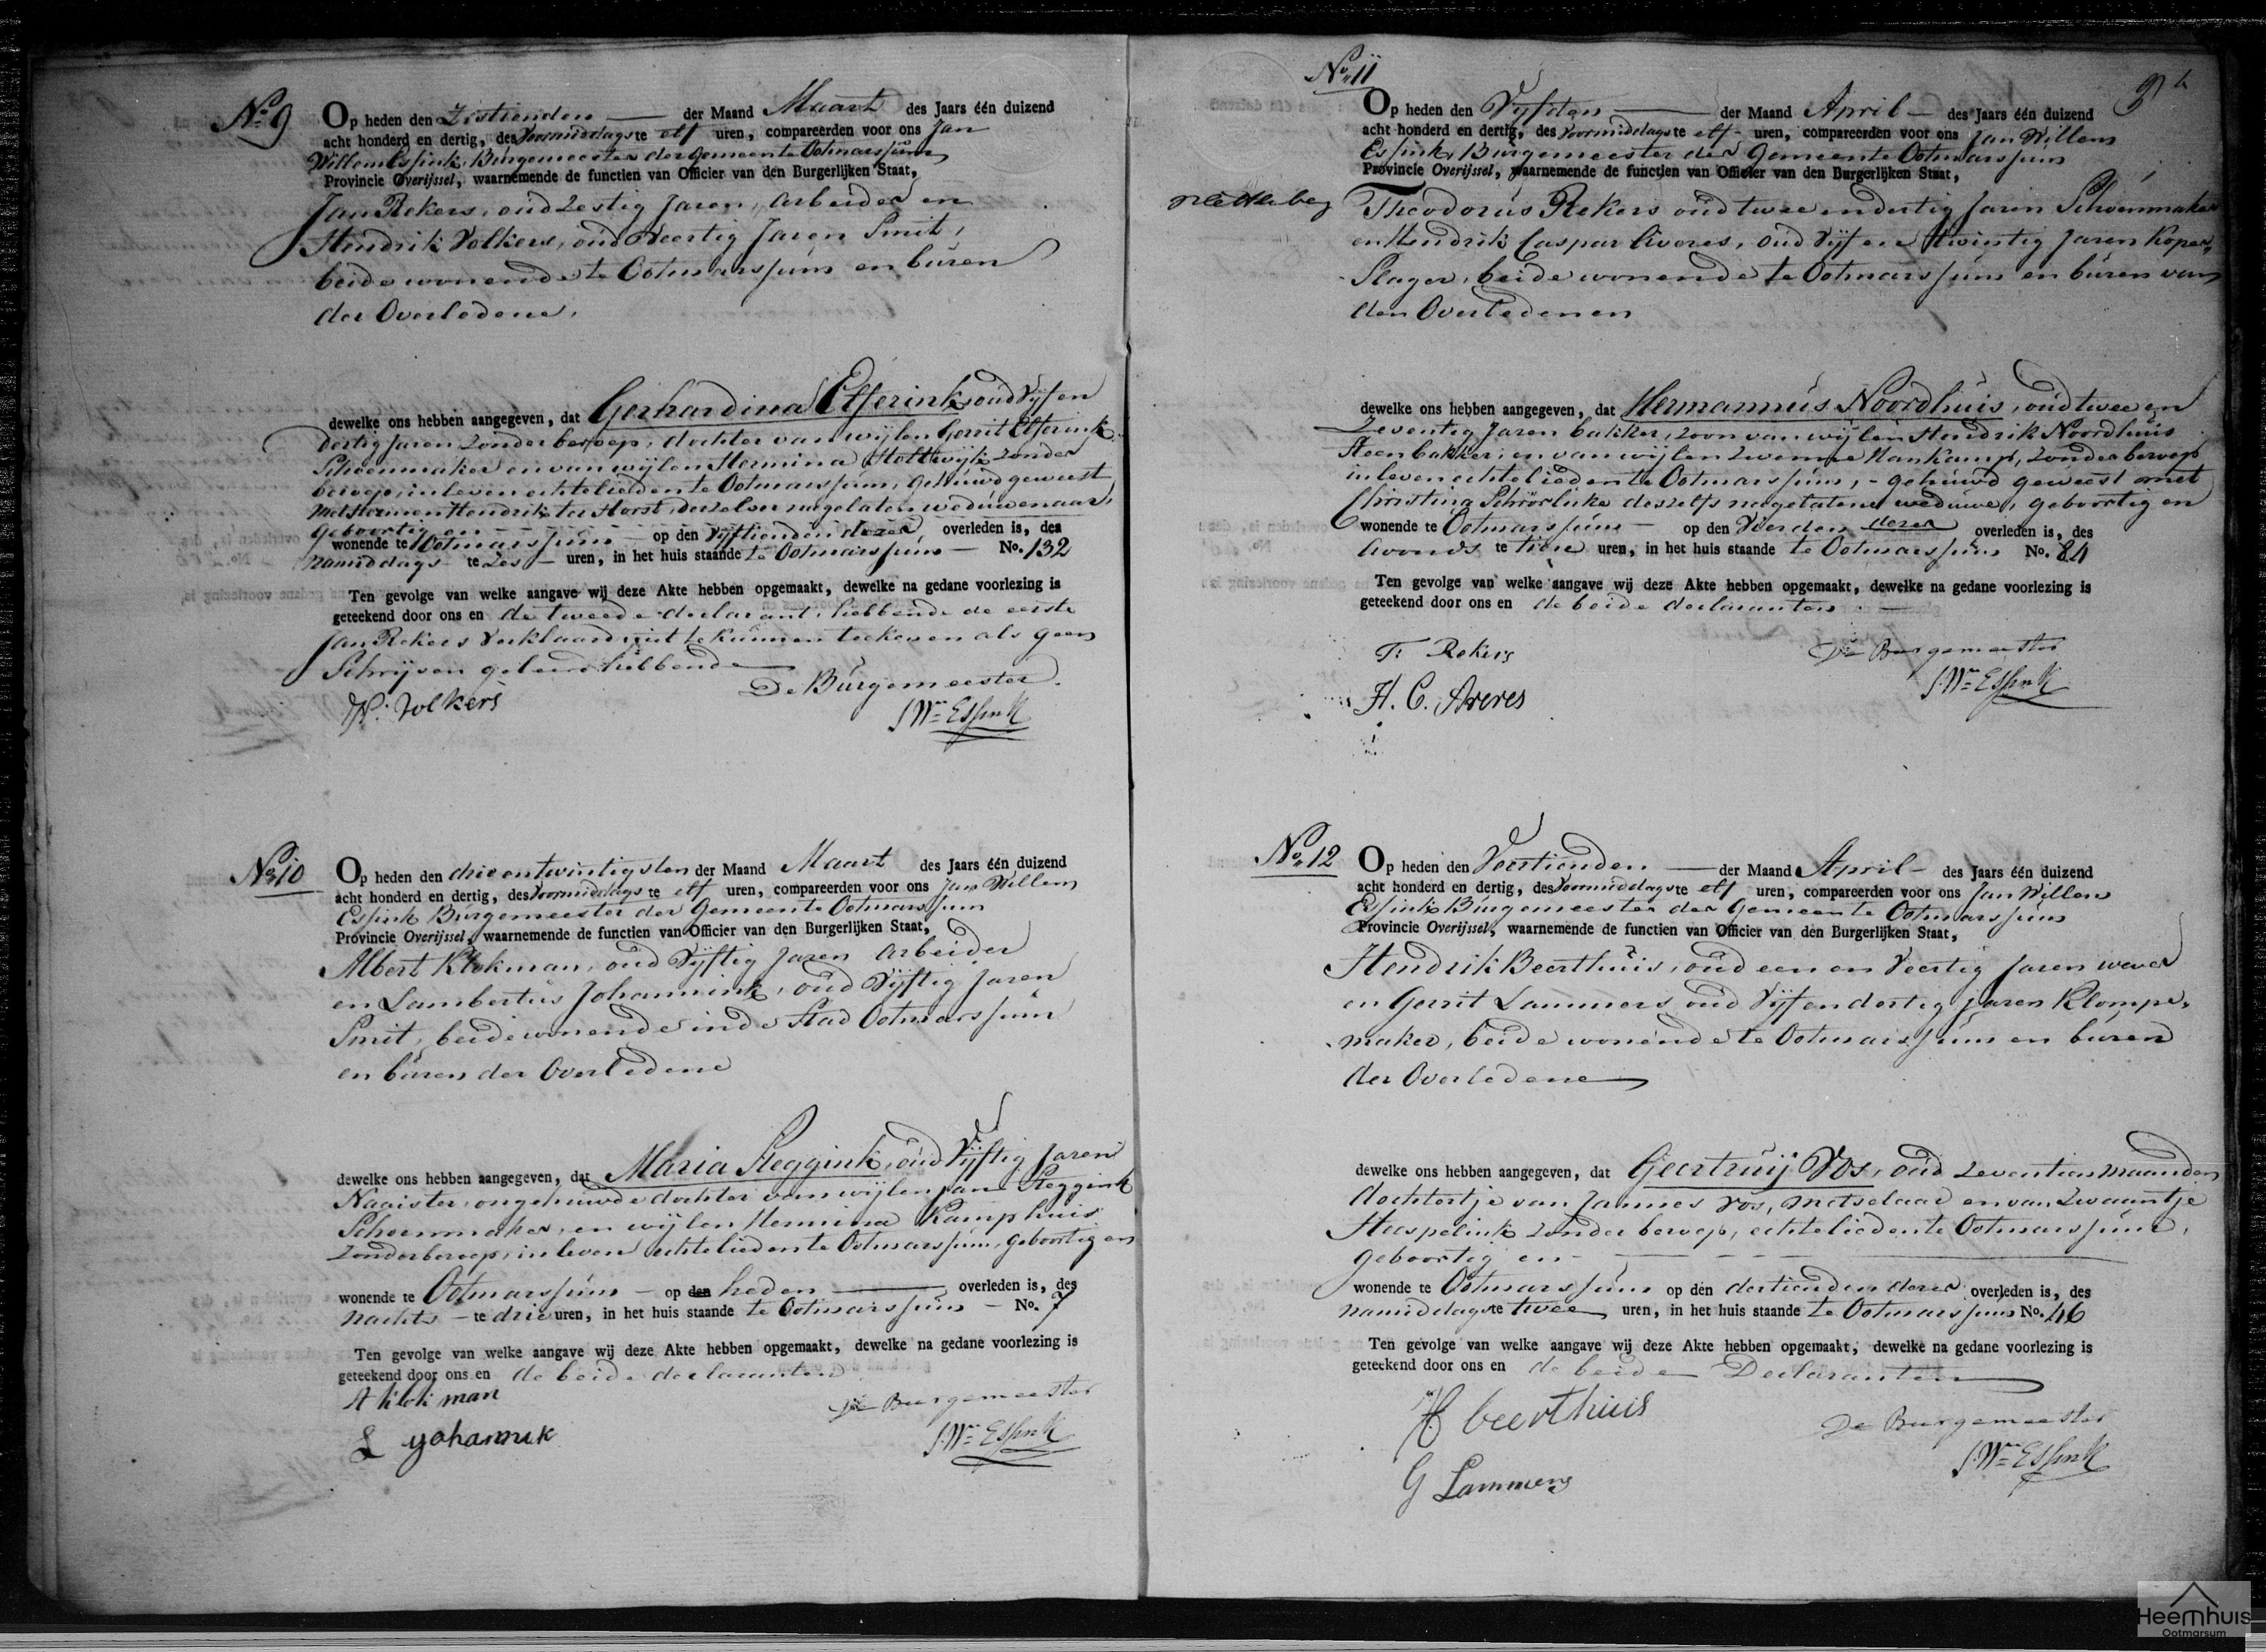 No 9
Op heden den Zestienden der Maand Maart des Jaars één duizend
acht honderd en dertig, des Voormiddags te elf uren, compareerden voor ons Jan
Willem Essink, Burgemeester der Gemeente Ootmarssum
Provincie Overijssel, waarnemende de functien van Officier van den Burgerlijken Staat,
Jan Rekers, oud Zestig Jaren, Arbeider en
Hendrik Volkers, oud Veertig Jaren Smit,
beide wonende te Ootmarssum en buren
der Overledene,
dewelke ons hebben aangegeven, dat Gerhardina Elferink, oud Vijf en
dertig Jaren zonder beroep, dochter van wijlen Gerrit Elferink
Schoenmaker en van wijlen Hermina Holtwijk zonder
beroep, in leven echtelieden te Ootmarssum, gehuwd geweest
met Hermen Hendrik ter Horst, derzelver nagelaten weduwenaar,
geboortig en
wonende te Ootmarssum op den Vijftienden dezer overleden is, des
namiddags te Zes uren, in het huis staande te Ootmarssum No. 132
Ten gevolge van welke aangave wij deze Akte hebben opgemaakt, dewelke na gedane voorlezing is
geteekend door ons en de tweede declarant, hebbende de eerste
Jan Rekers Verklaard niet te kunnen teekenen als geen
Schrijven geleerd hebbende
De Burgemeester
H. Volkers
J. Wm Essink
No 10
Op heden den drie en twintigsten der Maand Maart des Jaars één duizend
acht honderd en dertig, des Voormiddags te elf uren, compareerden voor ons Jan Willem
Essink Burgemeester der Gemeente Ootmarssum
Provincie Overijssel, waarnemende de functien van Officier van den Burgerlijken Staat,
Albert Klokman, oud Vijftig Jaren Arbeider
en Lambertus Johannink, oud Vijftig Jaren
Smit, beide wonende in de Stad Ootmarssum
en buren der Overledene
dewelke ons hebben aangegeven, dat Maria Reggink, oud Vijftig Jaren
Naaister, ongehuwde dochter van wijlen Jan Reggink
Schoenmaker, en wijlen Hermina Kamphuis
zonder beroep, in leven echtelieden te Ootmarssum, geboortig en
wonende te Ootmarssum op den heden overleden is, des
nachts te drie uren, in het huis staande te Ootmarssum No. 7
Ten gevolge van welke aangave wij deze Akte hebben opgemaakt, dewelke na gedane voorlezing is
geteekend door ons en de beide declaranten
A klokman
De Burgemeester
L Johannink
J. Wm Essink
No 11
Op heden den Vijfden der Maand April des Jaars één duizend
acht honderd en dertig, des Voormiddags te elf uren, compareerden voor ons Jan Willem
Essink, Burgemeester der Gemeente Ootmarssum
Provincie Overijssel, waarnemende de functien van Officier van den Burgerlijken Staat,
Theodorus Rekers oud twee en dertig Jaren Schoenmaker
en Hendrik Caspar Averes, oud Vijf en twintig Jaren Koper
Slager, beide wonende te Ootmarssum en buren van
den Overledenen
dewelke ons hebben aangegeven, dat Hermannus Noordhuis, oud twee en
Zeventig Jaren bakker, zoon van wijlen Hendrik Noordhuis
Steenbakker, en van wijlen Zwenne Hankamp, zonder beroep
in leven echtelieden te Ootmarssum, gehuwd geweest met
Christina Schrörlüke deszelfs nagelatene weduwe, geboortig en
wonende te Ootmarssum op den Vierden dezer overleden is, des
Avonds te tien uren, in het huis staande te Ootmarssum No. 84
Ten gevolge van welke aangave wij deze Akte hebben opgemaakt, dewelke na gedane voorlezing is
geteekend door ons en de beide declaranten
T. Rekers
De Burgemeester
H. C. Averes
J. Wm Essink
No 12
Op heden den Veertienden der Maand April des Jaars één duizend
acht honderd en dertig, des Voormiddags te elf uren, compareerden voor ons Jan Willem
Essink Burgemeester der Gemeente Ootmarssum
Provincie Overijssel, waarnemende de functien van Officier van den Burgerlijken Staat,
Hendrik Beerthuis, oud een en Veertig Jaren wever
en Gerrit Lammers oud Vijf en dertig Jaren Klompe-
maker, beide wonende te Ootmarssum en buren
der Overledene
dewelke ons hebben aangegeven, dat Geertruij Vos, oud zeventien maanden
dochtertje van Jannes Vos, metselaar en van Zwaantje
Haspelink zonder beroep, echtelieden te Ootmarssum,
geboortig en
wonende te Ootmarssum op den dertienden dezer overleden is, des
namiddags te twee uren, in het huis staande te Ootmarssum No. 46
Ten gevolge van welke aangave wij deze Akte hebben opgemaakt, dewelke na gedane voorlezing is
geteekend door ons en de beide Declaranten
H beerthuis
De Burgemeester
G Lammers
J. Wm Essink
Heemhuis
Ootmarsum